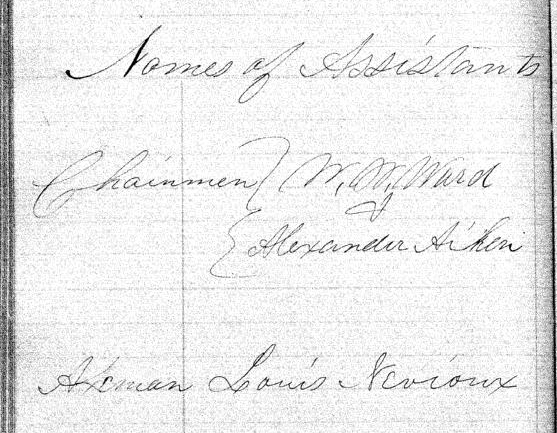 Names of Assistants
Chainmen { W. W. Ward
{ Alexander Aiken
Axeman Louis Nevioux